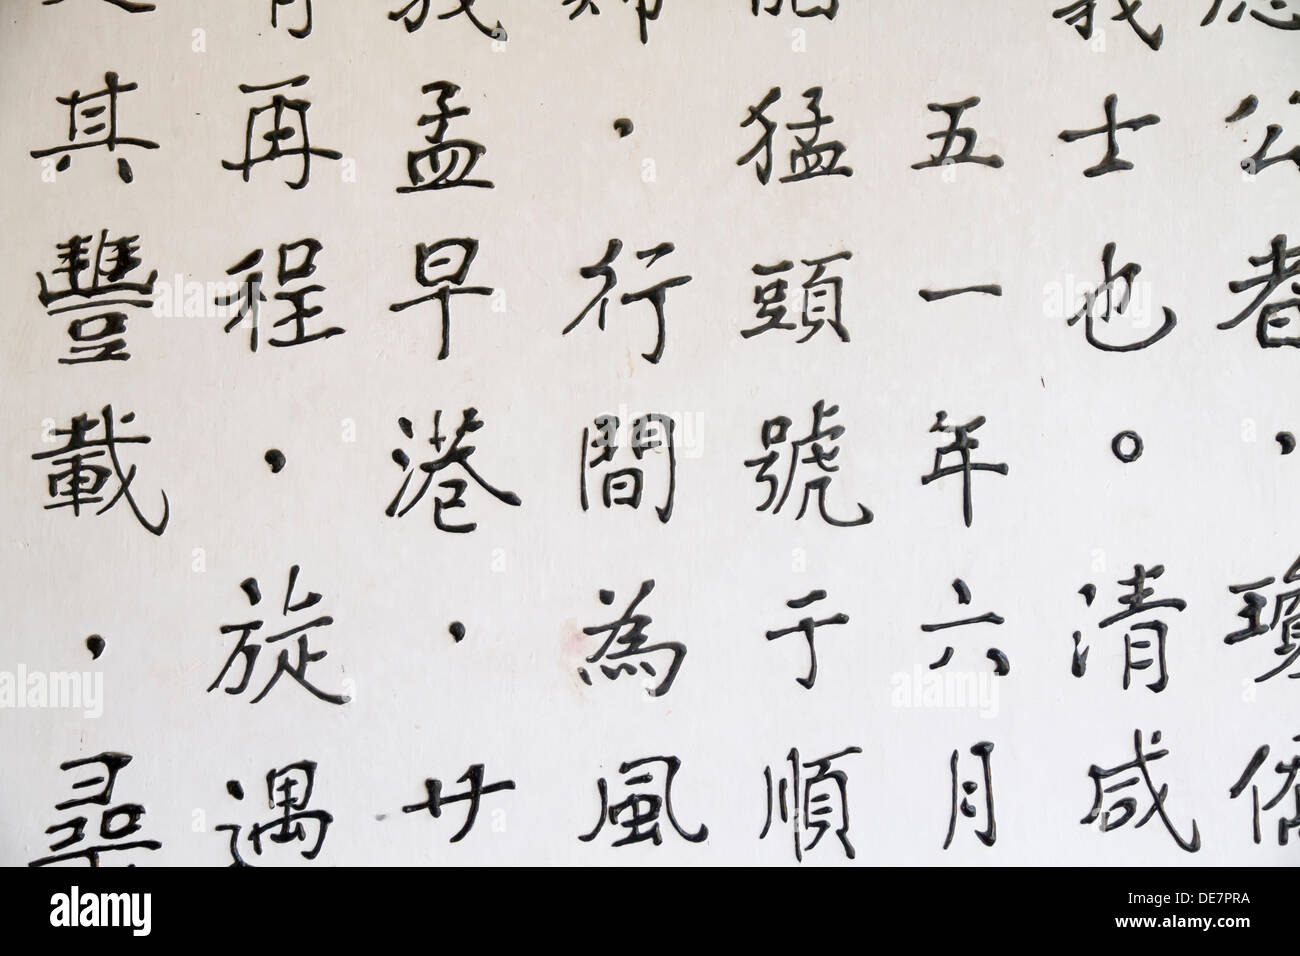 公者，瓊
我士也。清咸
五一年六月
猛頭號于順
·行間為風
我孟早港，廿
再程，旋遇
其豐載，尋
alamy stock photo
DE7PRA
www.alamy.com